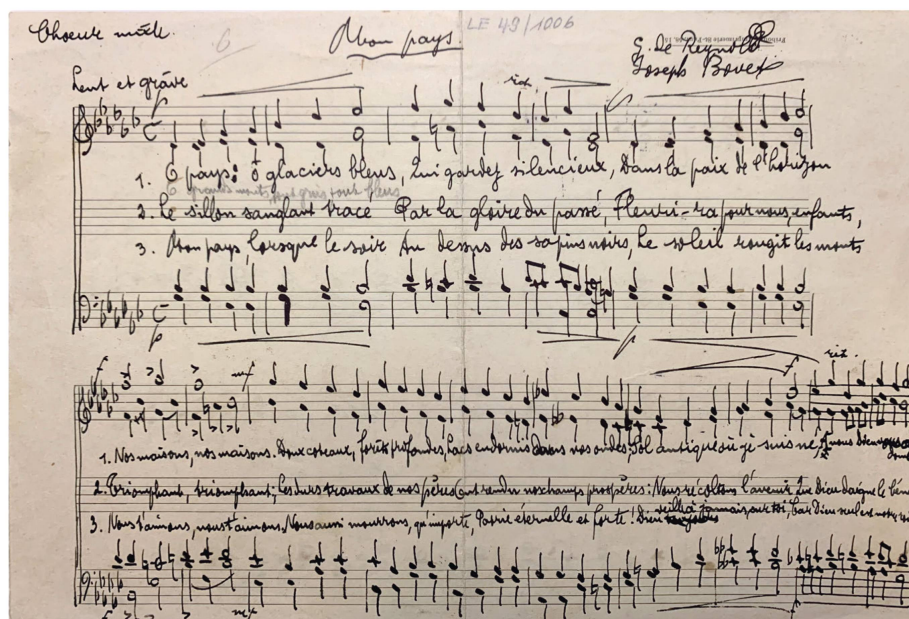 Choeur mixte.
6
Mon pays
LE 49/1006
G. de Reynold
Joseph Bovet
Lent et grave
rit.
1. O pays: ô glaciers bleus, Qui gardez silencieux, Dans la paix de l'horizon
O grands monts, tout gris tout bleus
2. Le sillon sanglant tracé Par la gloire du passé, Fleuri-ra pour nous, enfants,
3. Mon pays, lorsque le soir Au dessus des sapins noirs, Le soleil rougit les monts
p
p
f mf f rit.
1. Nos maisons, nos maisons. Doux coteaux, forêts profondes, Lacs endormis dans nos ondes, Sol antique où je suis né, nous Dieu
2. Triomphant, triomphant; Les durs travaux de nos pères Ont rendu nos champs prospères: Nous récoltons l'avenir Que Dieu daigne le bén
3. Nous t'aimons, nous t'aimons. Nous aussi mourrons, qu'importe, Patrie éternelle et forte! Dieu veille à jamais sur toi, Car Dieu seul est notre
f mf f